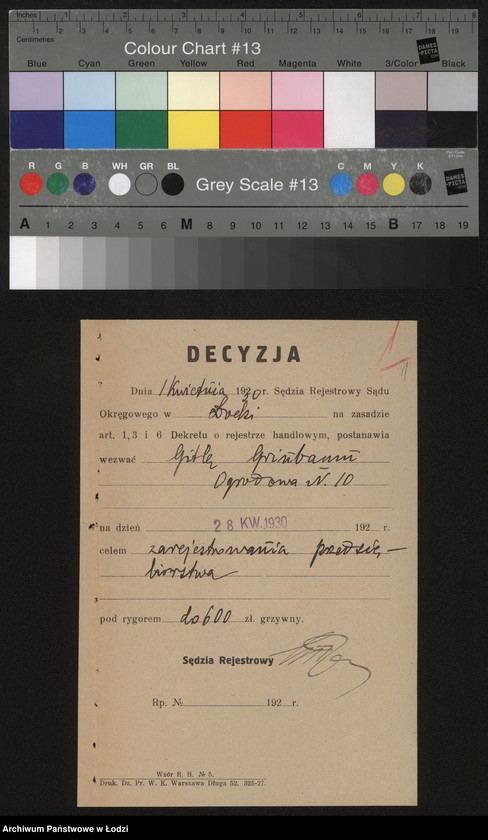 Inches 1 2 3 4 5 6 7 8
Centimetres 1 2 3 4 5 6 7 8 9 10 11 12 13 14 15 16 17 18 19
Colour Chart #13
DANES
-PICTA
.COM
Blue Cyan Green Yellow Red Magenta White 3/Color Black
R G B WH GR BL Grey Scale #13 C M Y K DANES
-PICTA
.COM
A 1 2 3 4 5 6 M 8 9 10 11 12 13 14 15 16 B 17 18 19
DECYZJA
Dnia 1 Kwietnia 1930 r. Sędzia Rejestrowy Sądu
Okręgowego w Łodzi na zasadzie
art. 1, 3 i 6 Dekretu o rejestrze handlowym, postanawia
wezwać Gitlę Grinbaum
Ogrodowa N. 10
na dzień 28 KW. 1930 192 r.
celem zarejestrowania przedsię-
biorstwa
pod rygorem do 600 zł. grzywny.
Sędzia Rejestrowy
Rp. № 192 r.
Wzór R. H. № 5.
Druk. Dz. Pr. W. K. Warszawa Długa 52. 325-27.
Archiwum Państwowe w Łodzi